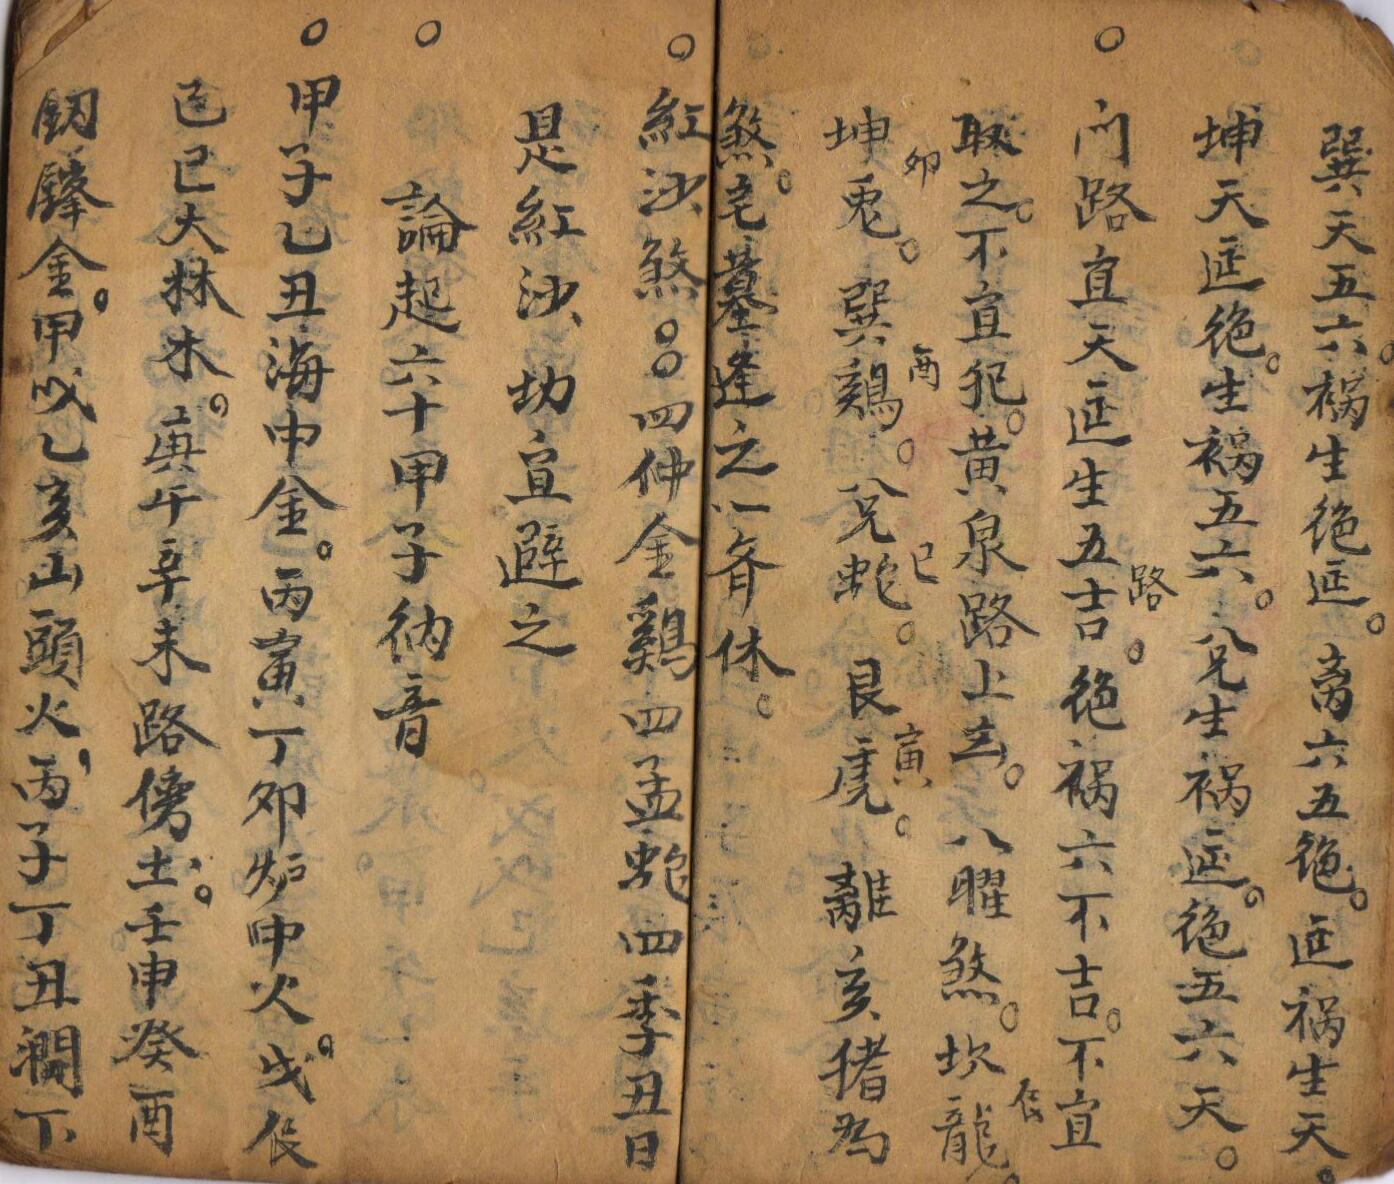 巽天五六禍生绝延。离六五绝。延禍生天。
坤天延绝。生禍五六。兌生禍延。绝五六天。
门路宜天延生五吉。绝禍六不吉。不宜
路
取之。不宜犯。黄泉路上去。八曜煞。坎龍。
辰
坤兎。巽鷄。兌蛇。艮虎。離亥猪為
卯 酉 巳 寅
煞。宅墓逢之一斉休。
紅沙煞。。四仲金鷄四孟蛇四季丑日
是紅沙切宜避之
論起六十甲子納音
甲子乙丑海中金。丙寅丁卯炉中火。戊辰
己巳大林木。庚午辛未路傍土。壬申癸酉
釼鋒金。甲戌乙亥山頭火。丙子丁丑澗下